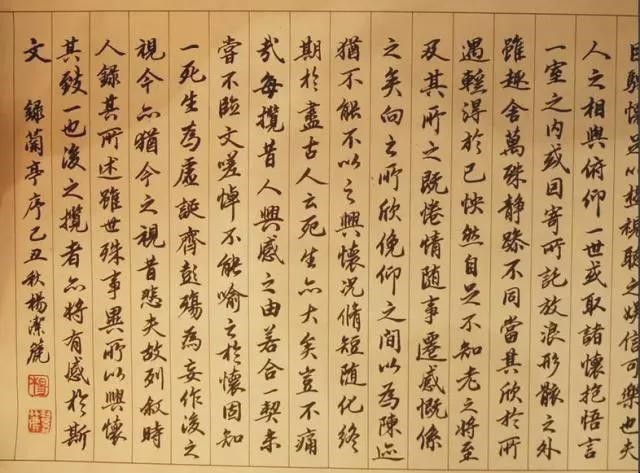 目騁懷足以極視聽之娛信可樂也夫
人之相與俯仰一世或取諸懷抱悟言
一室之內或因寄所託放浪形骸之外
雖趣舍萬殊静躁不同當其欣於所
遇輕得於己怏然自足不知老之將至
及其所之既惓情随事遷感慨係
之矣向之所欣俛仰之間以為陳迹
猶不能不以之興懷況脩短随化終
期於盡古人云死生亦大矣豈不痛
哉每攬昔人興感之由若合一契未
嘗不臨文嗟悼不能喻之於懷固知
一死生為虛誕齊彭殤為妄作後之
視今亦猶今之視昔悲夫故列敘時
人錄其所述雖世殊事異所以興懷
其致一也後之攬者亦將有感於斯
文 錄蘭亭序己丑秋楊潔麗